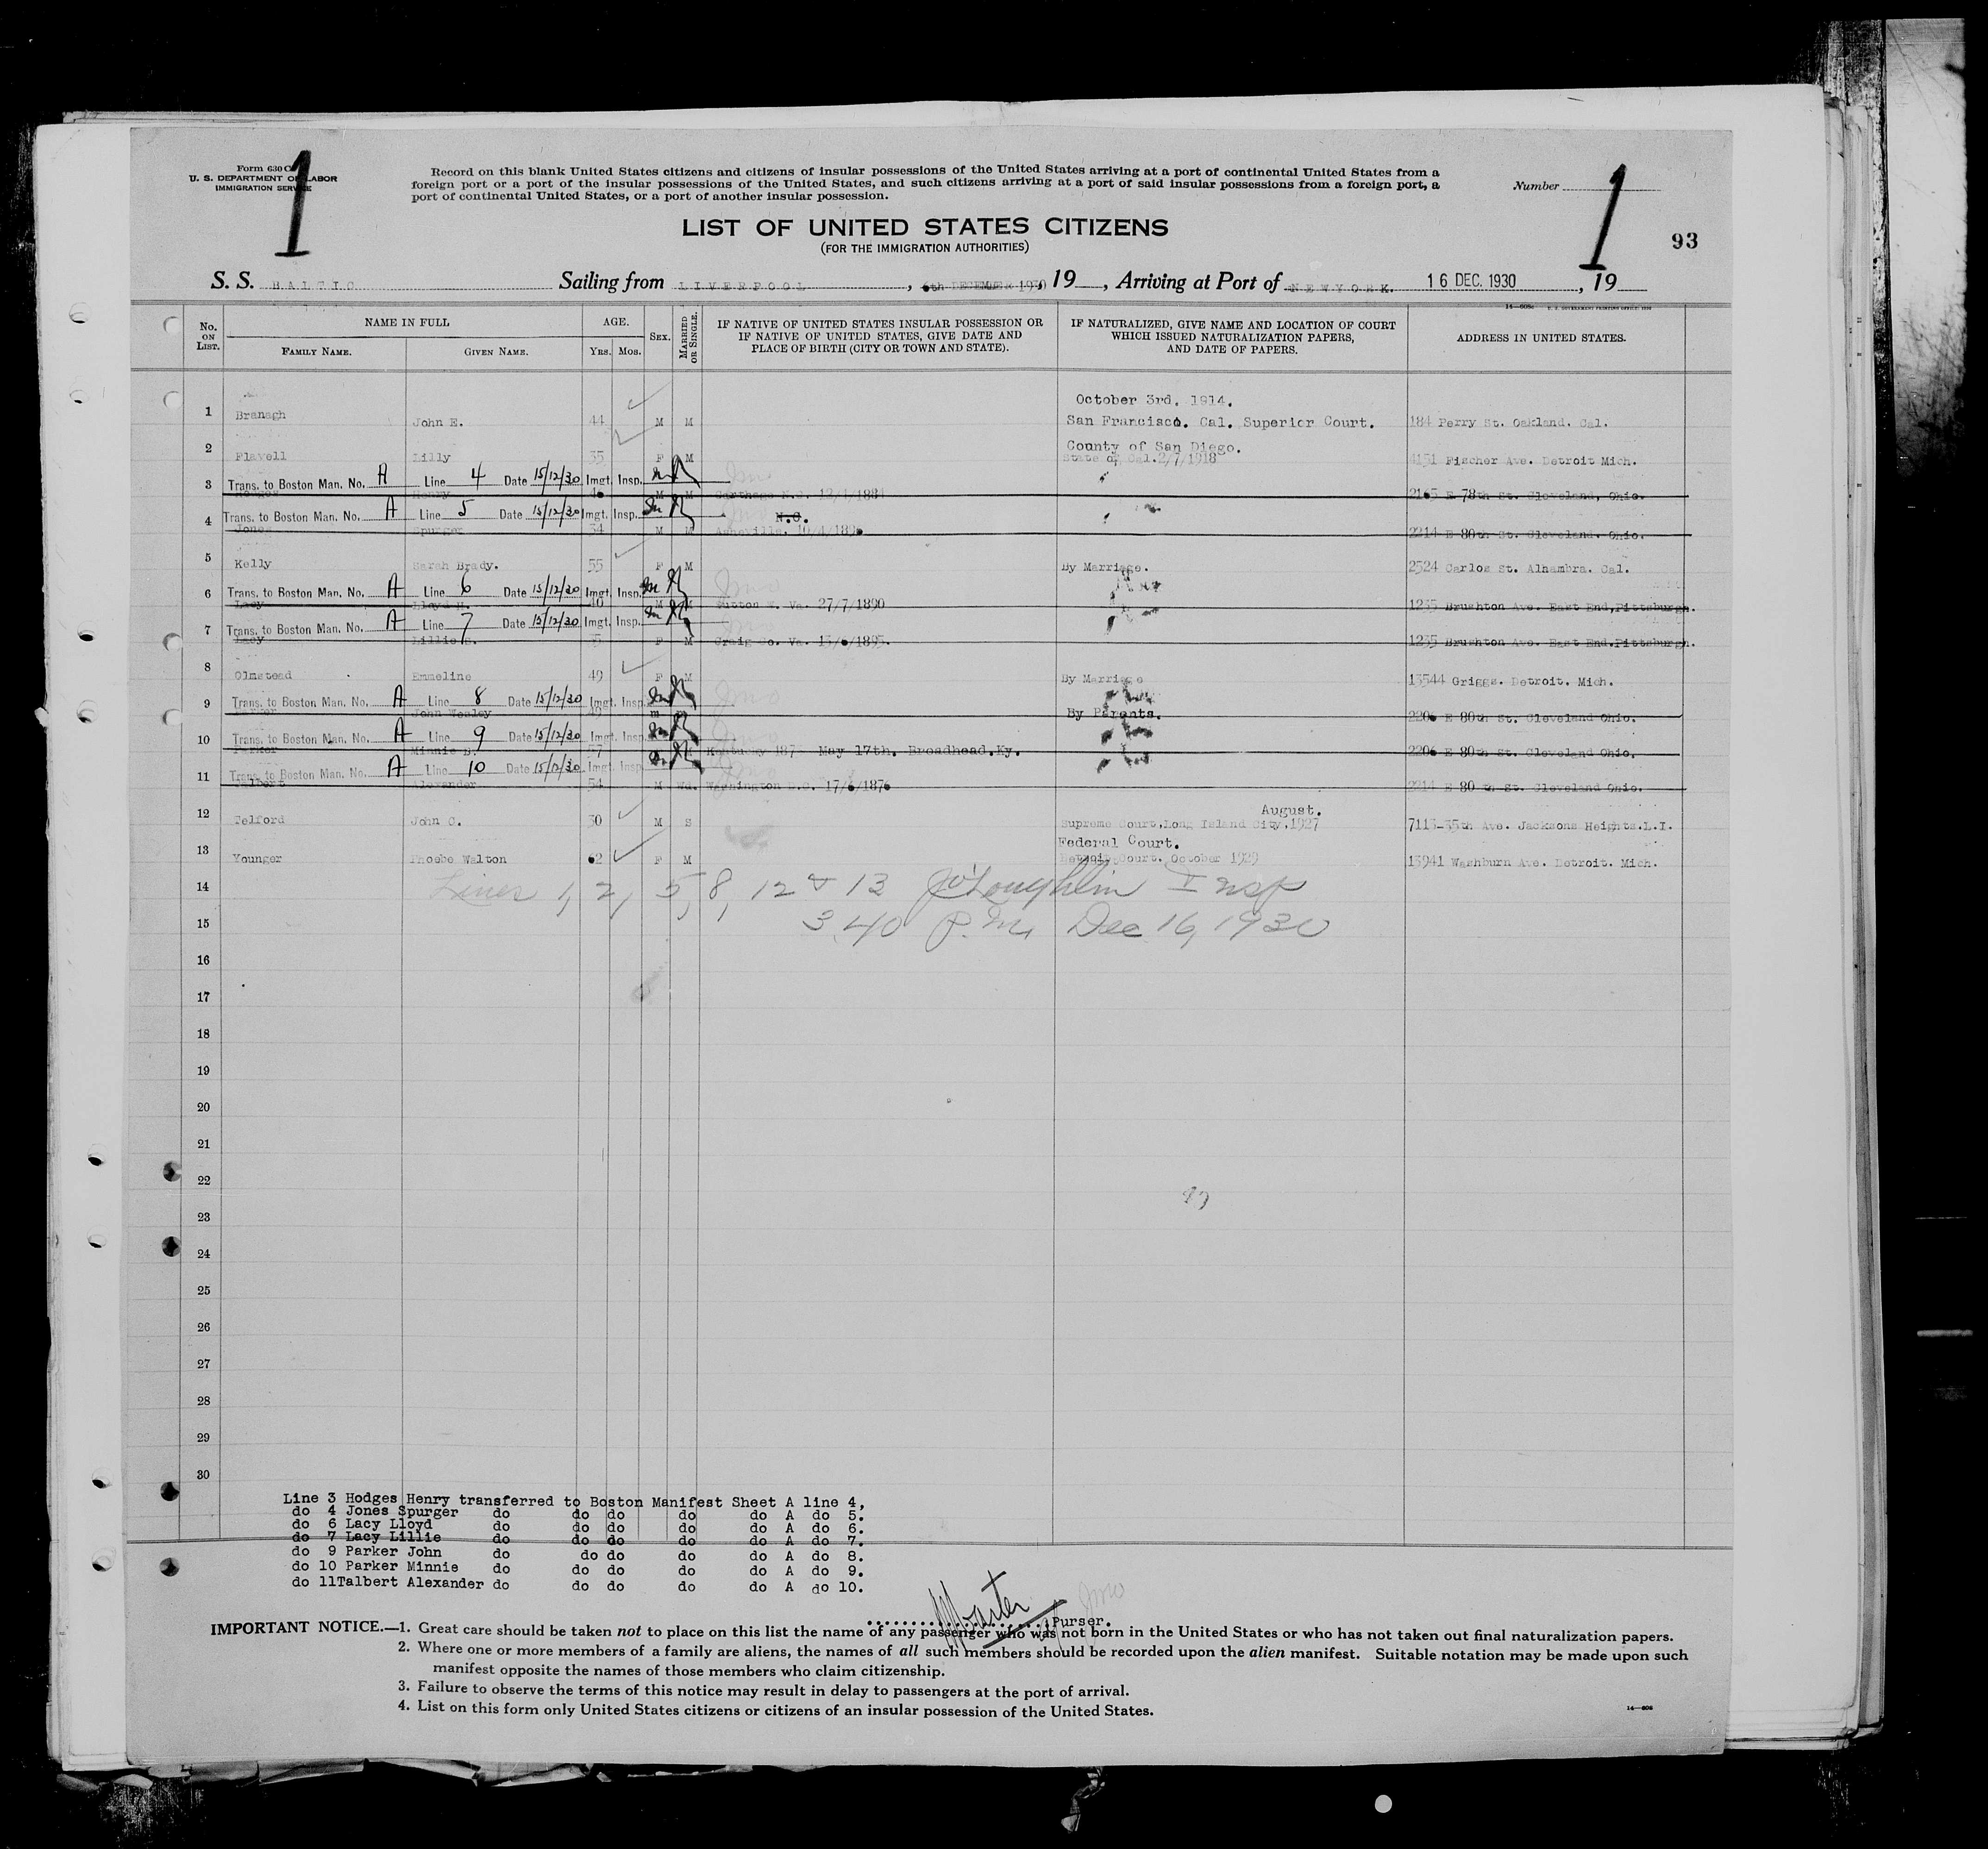 Form 630 C
U. S. DEPARTMENT OF LABOR
IMMIGRATION SERVICE
1
Record on this blank United States citizens and citizens of insular possessions of the United States arriving at a port of continental United States from a
foreign port or a port of the insular possessions of the United States, and such citizens arriving at a port of said insular possessions from a foreign port, a
port of continental United States, or a port of another insular possession.
Number
1
93
LIST OF UNITED STATES CITIZENS
(FOR THE IMMIGRATION AUTHORITIES)
S. S. BALTIC Sailing from LIVERPOOL, 6th DECEMBER 1930, 19 , Arriving at Port of NEW YORK. 16 DEC. 1930, 19
No. ON LIST. NAME IN FULL AGE. SEX. MARRIED OR SINGLE. IF NATIVE OF UNITED STATES INSULAR POSSESSION OR IF NATIVE OF UNITED STATES, GIVE DATE AND PLACE OF BIRTH (CITY OR TOWN AND STATE). IF NATURALIZED, GIVE NAME AND LOCATION OF COURT WHICH ISSUED NATURALIZATION PAPERS, AND DATE OF PAPERS. ADDRESS IN UNITED STATES.
FAMILY NAME. GIVEN NAME. YRS. MOS.
October 3rd. 1914.
1 Branagh John E. 44 M M San Francisco. Cal. Superior Court. 184 Perry St. Oakland. Cal.
County of San Diego.
2 Flavell Lilly 35 F M State of Cal. 2/7/1918 4151 Fischer Ave. Detroit Mich.
3 Trans. to Boston Man. No. A Line 4 Date 15/12/30 Imgt. Insp.
Hodges Henry M M Carthage N.C. 2165 E 78th St. Cleveland, Ohio.
4 Trans. to Boston Man. No. A Line 5 Date 15/12/30 Imgt. Insp. N.C.
Jones Spurger 34 M M Asheville. 2214 E 80th St. Cleveland. Ohio.
5 Kelly Sarah Brady. 55 F M By Marriage. 2524 Carlos St. Alhambra. Cal.
6 Trans. to Boston Man. No. A Line 6 Date 15/12/30 Imgt. Insp.
Lacy Lloyd H. 40 M M Sutton W. Va. 27/7/1890 1235 Brushton Ave. East End, Pittsburgh.
7 Trans. to Boston Man. No. A Line 7 Date 15/12/30 Imgt. Insp.
Lacy Lillie 35 F M Craig Co. Va. 1235 Brushton Ave. East End. Pittsburgh.
8 Olmstead Emmeline 49 F M By Marriage 13544 Griggs. Detroit. Mich.
9 Trans. to Boston Man. No. A Line 8 Date 15/12/30 Imgt. Insp.
Parker John Wesley m m By Parents. 2206 E 80th St. Cleveland Ohio.
10 Trans. to Boston Man. No. A Line 9 Date 15/12/30 Imgt. Insp.
Parker Minnie B. 57 Kentucky 1873 May 17th. Broadhead. Ky. 2206 E 80th St. Cleveland Ohio.
11 Trans. to Boston Man. No. A Line 10 Date 15/12/30 Imgt. Insp.
Talbert Alexander 54 M Wd. Washington D.C. 17/6/1876 2214 E 80 th St. Cleveland Ohio.
August.
12 Telford John C. 30 M S Supreme Court, Long Island City, 1927 7113-35th Ave. Jacksons Heights. L.I.
Federal Court.
13 Younger Phoebe Walton 62 F M Detroit Court. October 1929 13941 Washburn Ave. Detroit. Mich.
14 Lines 1, 2, 5, 8, 12 & 13 J O'Loughlin Insp
15 3.40 P.M. Dec 16, 1930
16
17
18
19
20
21
22
23
24
25
26
27
28
29
30
Line 3 Hodges Henry transferred to Boston Manifest Sheet A line 4,
do 4 Jones Spurger do do do do do A do 5.
do 6 Lacy Lloyd do do do do do A do 6.
do 7 Lacy Lillie do do do do do A do 7.
do 9 Parker John do do do do do A do 8.
do 10 Parker Minnie do do do do do A do 9.
do 11 Talbert Alexander do do do do do A do 10.
Purser.
IMPORTANT NOTICE.—1. Great care should be taken not to place on this list the name of any passenger who was not born in the United States or who has not taken out final naturalization papers.
2. Where one or more members of a family are aliens, the names of all such members should be recorded upon the alien manifest. Suitable notation may be made upon such
manifest opposite the names of those members who claim citizenship.
3. Failure to observe the terms of this notice may result in delay to passengers at the port of arrival.
4. List on this form only United States citizens or citizens of an insular possession of the United States.
14—608